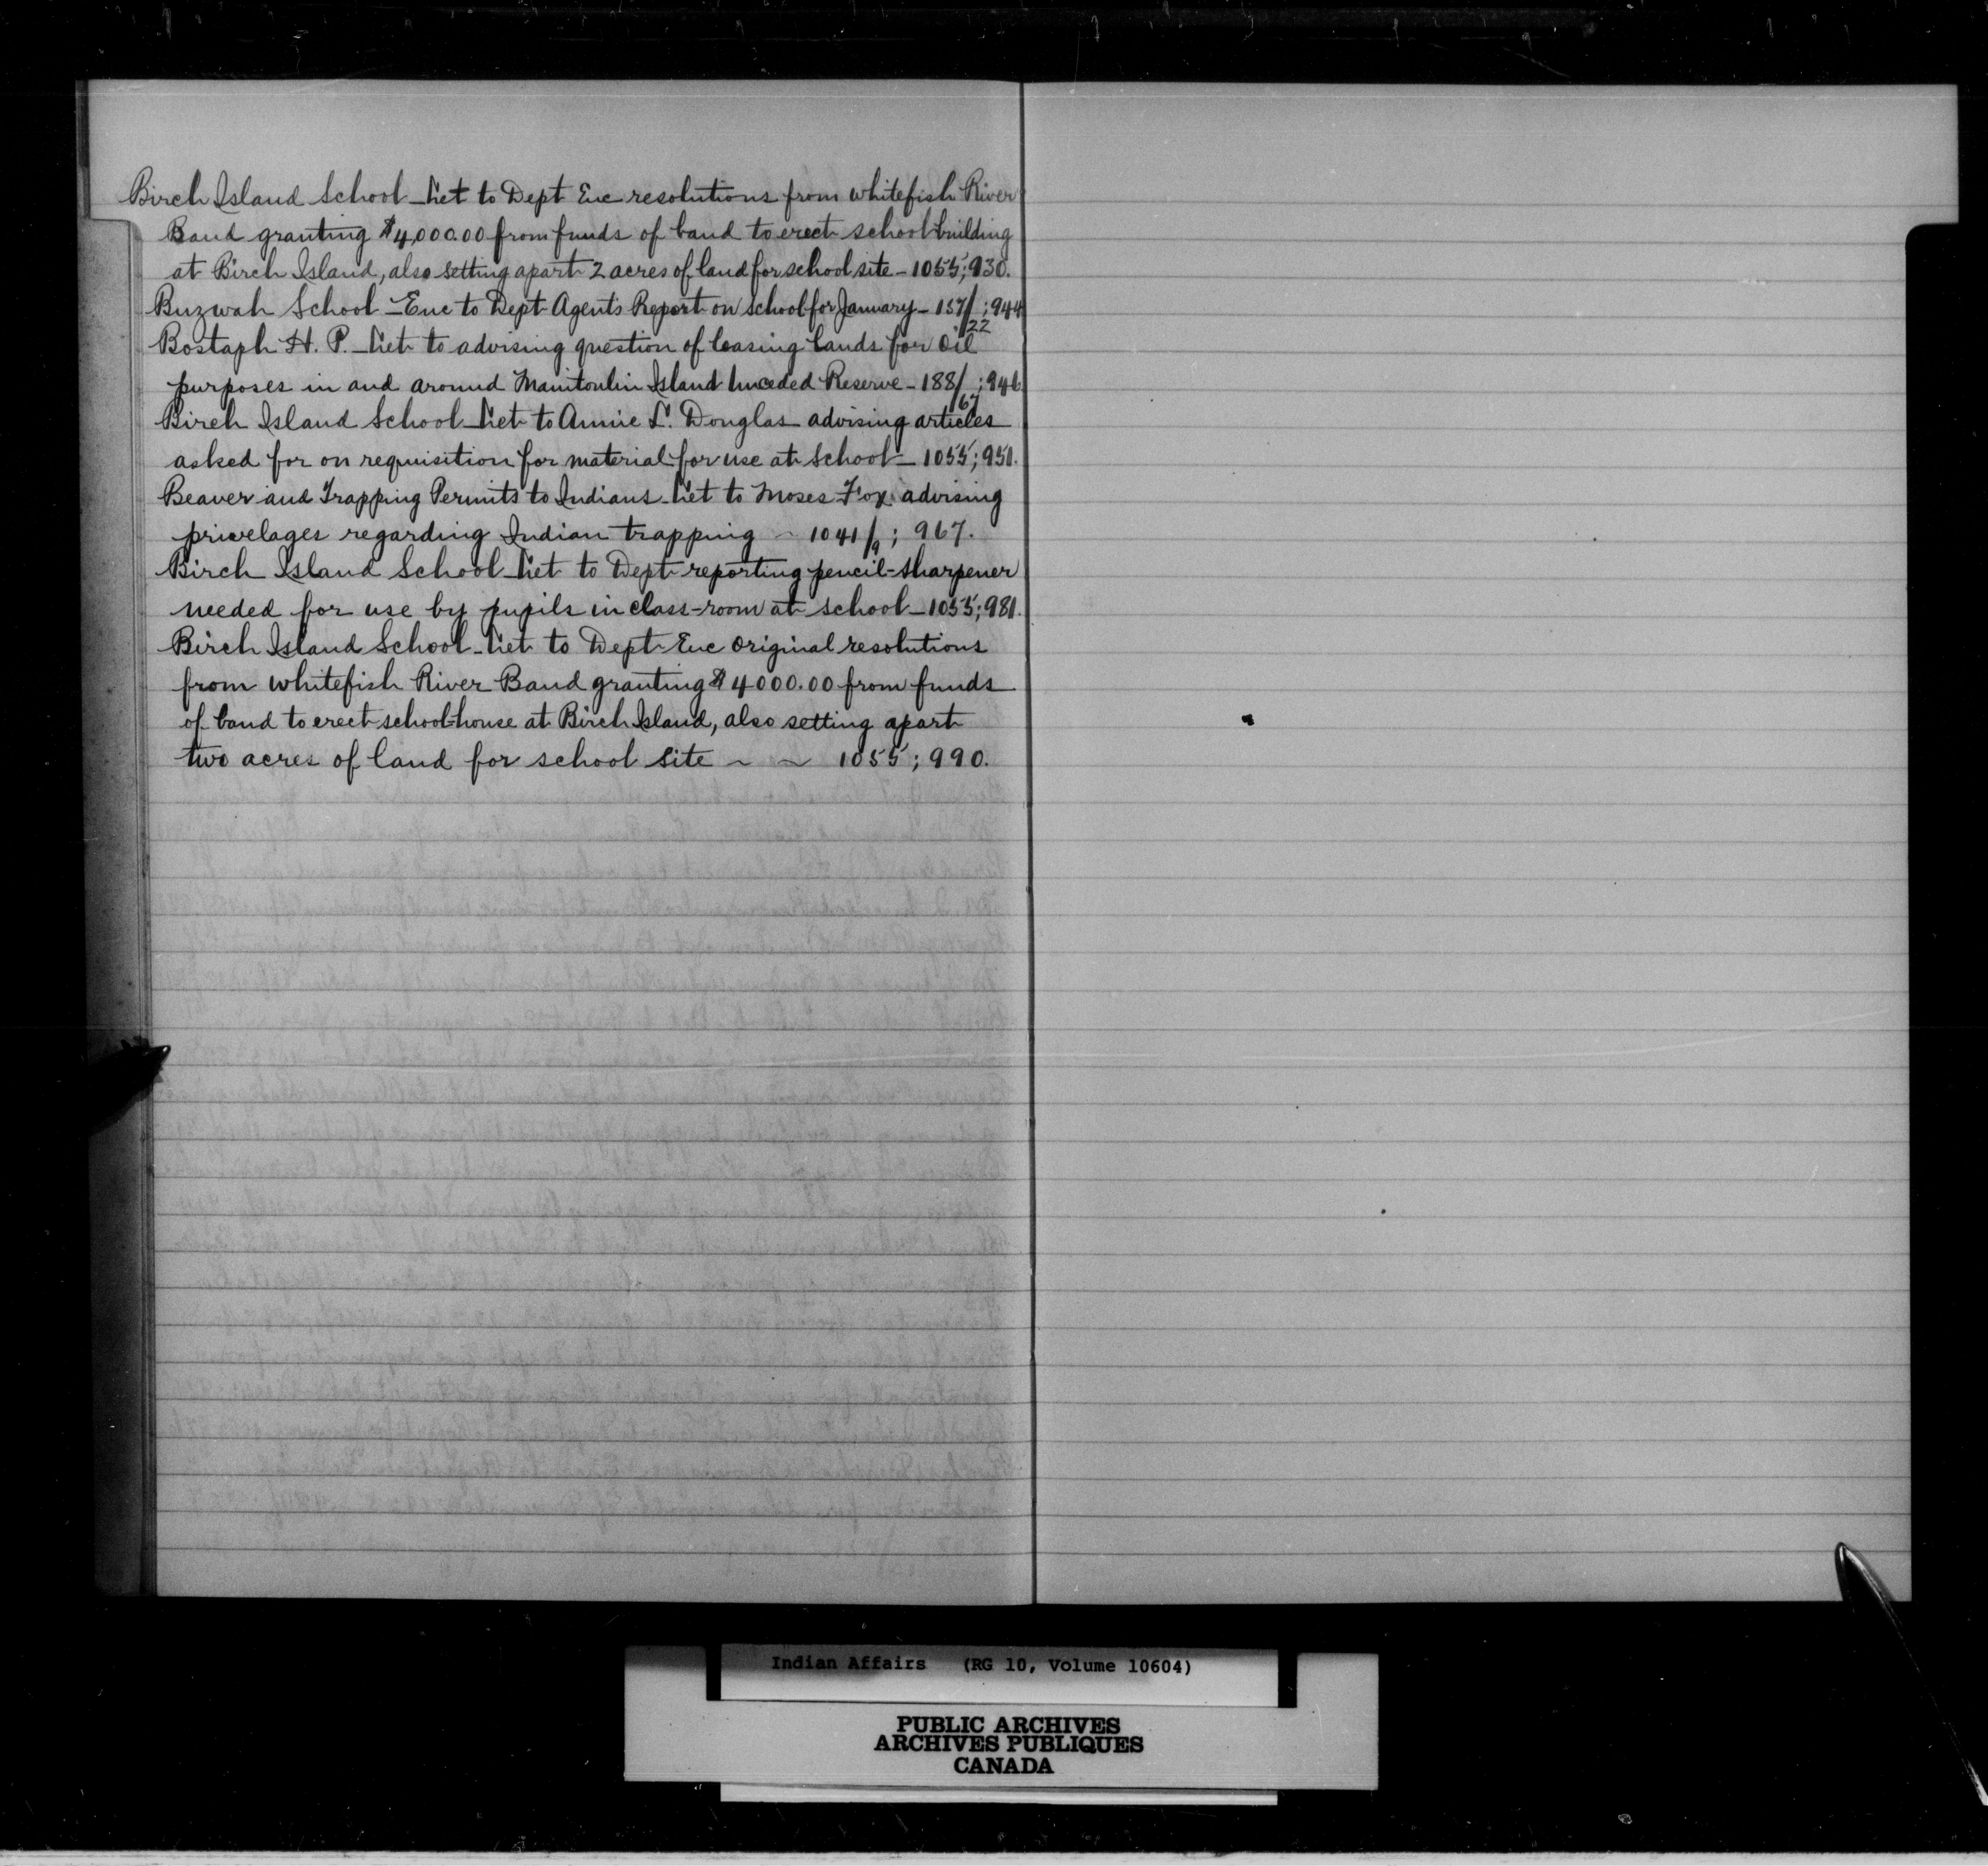 Birch Island School - Let to Dept Enc resolutions from Whitefish River
Band granting $4,000.00 from funds of band to erect school-building
at Birch Island, also setting apart 2 acres of land for school site - 1055; 930.
Buzwah School - Enc to Dept Agents Report on school for January - 157/22; 944
Bostaph H. P. - Let to advising question of leasing lands for oil
purposes in and around Manitoulin Island Unceded Reserve - 188/67; 946
Birch Island School - Let to Annie L. Douglas advising articles
asked for on requisition for material for use at school - 1055; 950.
Beaver and Trapping Permits to Indians - Let to Moses Fox advising
privelages regarding Indian trapping ~ 1041/9; 967.
Birch Island School - Let to Dept reporting pencil-sharpener
needed for use by pupils in class-room at school - 1055; 981.
Birch Island School - Let to Dept Enc original resolutions
from Whitefish River Band granting $4000.00 from funds
of band to erect school-house at Birch Island, also setting apart
two acres of land for school site ~ ~ 1055; 990.
Indian Affairs (RG 10, Volume 10604)
PUBLIC ARCHIVES
ARCHIVES PUBLIQUES
CANADA